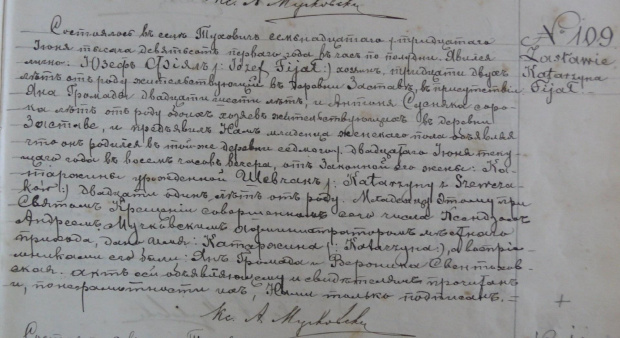 Кс. А. Мурковски
Состоялось въ селѣ Туховичъ семьнадцатаго /:тридцатаго
Іюня тысяча девятьсотъ перваго года въ часъ по полудни. Явился
лично: Юзефъ Фіялъ /: Józef Fijał:) хозяинъ, тридцати двухъ
лѣтъ отъ роду жительствующій въ деревни Заставѣ, въ присутствіи
Яна Громада двадцати шести лѣтъ, и Антонія соро-
ка лѣтъ отъ роду обоихъ хозяевъ жительствующихъ въ деревни
Заставѣ, и предъявилъ Намъ младенца женскаго пола объявляя
что онъ родился въ той же деревни седьмого /: двадцатаго Іюня теку-
щаго года въ восемь часовъ вечера, отъ законной его жены: Ка-
таржины урожденной Шевчакъ /: Katarzyny z Szewcza-
ków :) двадцати одинъ лѣтъ отъ роду. Младенцу этому при
Святомъ Крещеніи совершенномъ сего числа Ксендзомъ
Андреемъ Администраторомъ мѣстнаго
прихода, дано имя: Катаржина (: Katarzyna :), а воспрі-
емниками его были: Янъ Громада и Вероника
актъ сей объявляющему и свидѣтелямъ прочитанъ
и, по неграмотности ихъ, Нами только подписанъ. =
Кс. А. Мурковски
№ 109
Zastawie
Katarzyna
Fijał
+